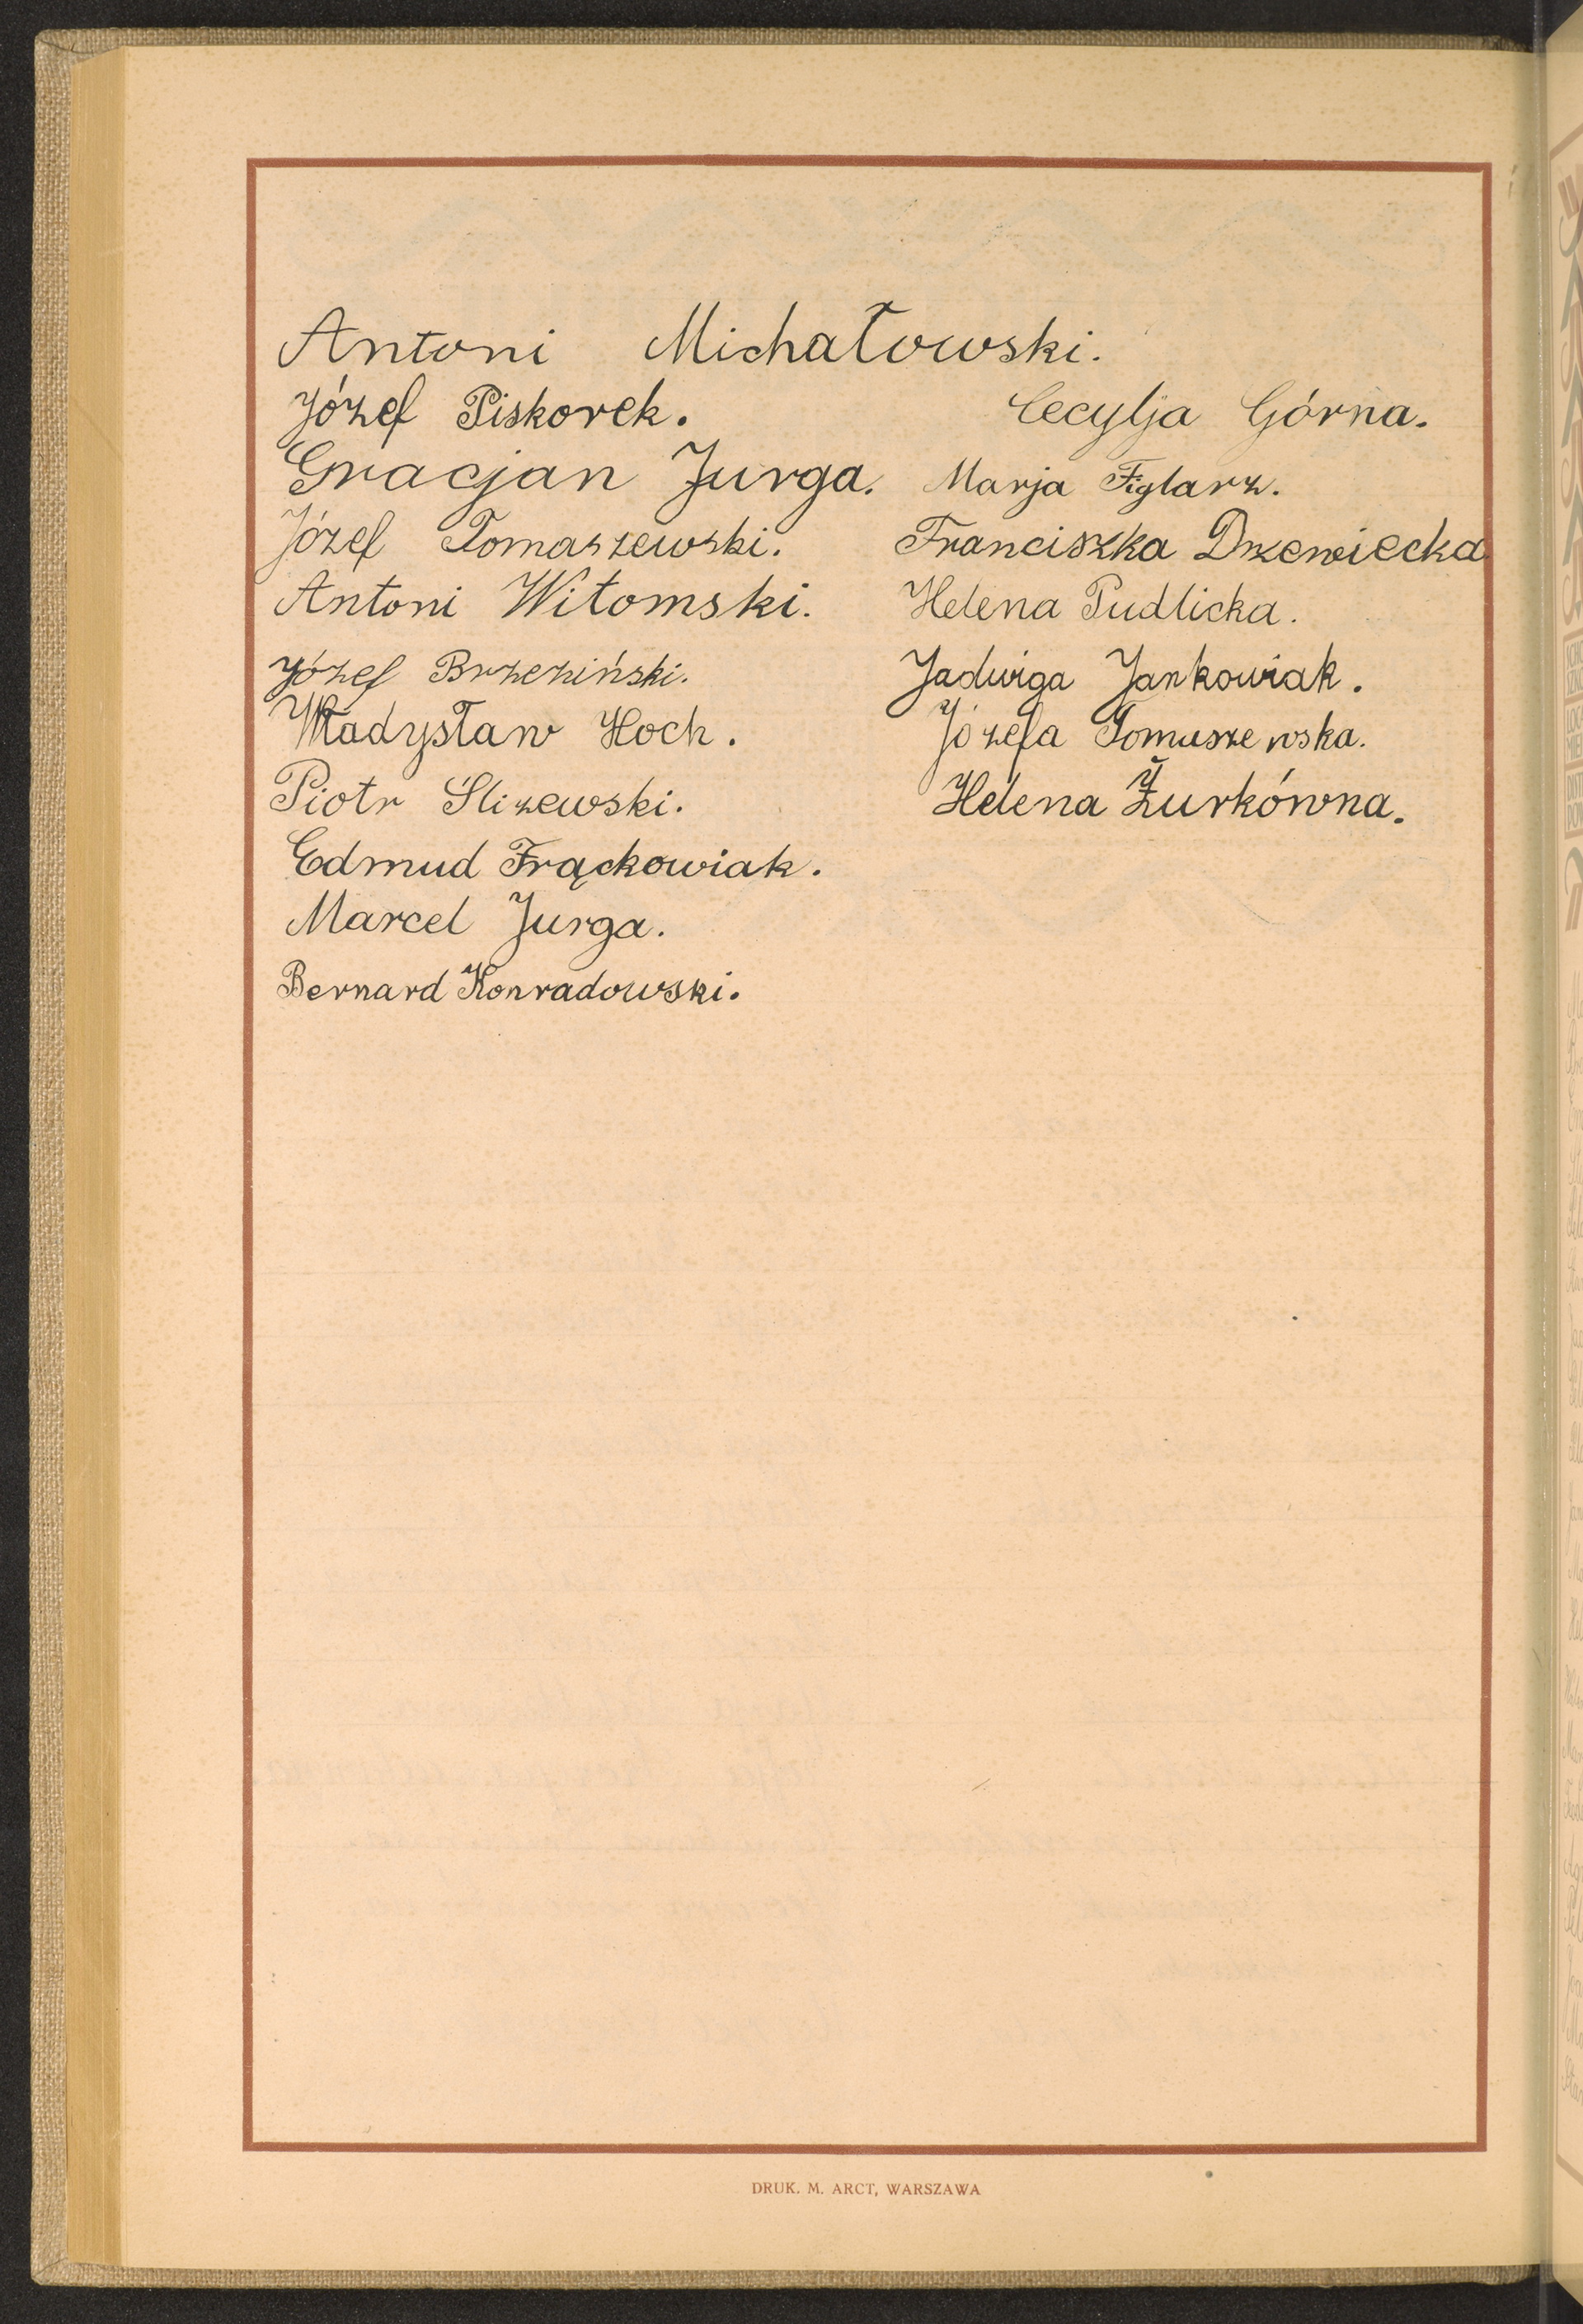 Antoni Michałowski.
Józef Piskorek.
Gracjan Jurga.
Józef Tomaszewski.
Antoni Witomski.
Józef Brzeziński.
Władysław Hoch.
Piotr Ślizewski.
Edmud Frąckowiak.
Marcel Jurga.
Bernard Konradowski.
Cecylja Górna.
Marja Figlarz.
Franciszka Drzewiecka
Helena Pudlicka.
Jadwiga Jankowiak.
Józefa Tomaszewska.
Helena Żurkówna.
DRUK. M. ARCT, WARSZAWA